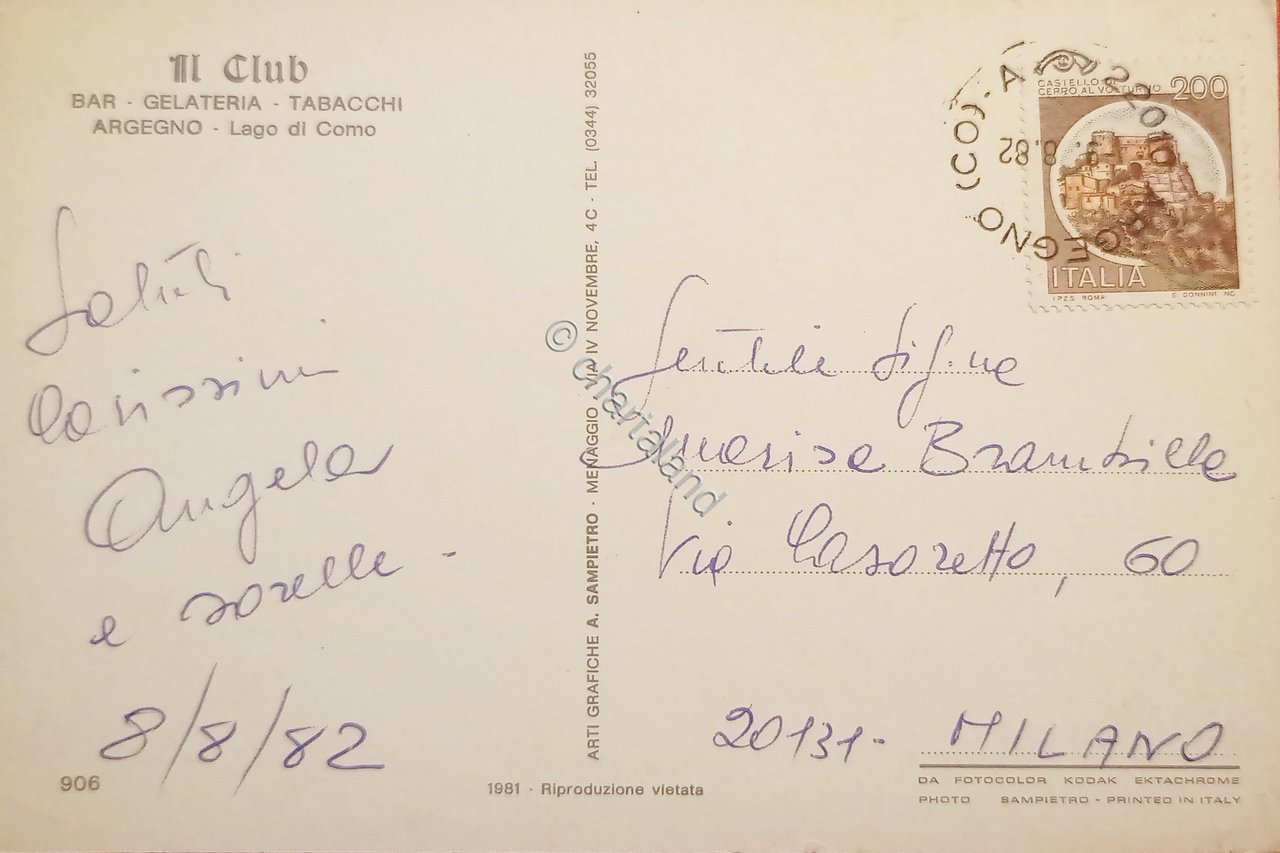 Il Club
BAR - GELATERIA - TABACCHI
ARGEGNO - Lago di Como
Saluti
Carissimi
Angela
e sorelle -
8/8/82
906
ARTI GRAFICHE A. SAMPIETRO - MENAGGIO VIA IV NOVEMBRE, 4 C - TEL. (0344) 32055
1981 - Riproduzione vietata
© chartaland
22010 ARGEGNO (CO) - A
-9. 8.82
CASTELLO
CERRO AL VOLTURNO 200
ITALIA
I.P.Z.S. ROMA E. DONNINI INC.
Gentile Sig.na
Marisa Brambilla
Via Casoretto, 60
20131 - MILANO
DA FOTOCOLOR KODAK EKTACHROME
PHOTO SAMPIETRO - PRINTED IN ITALY